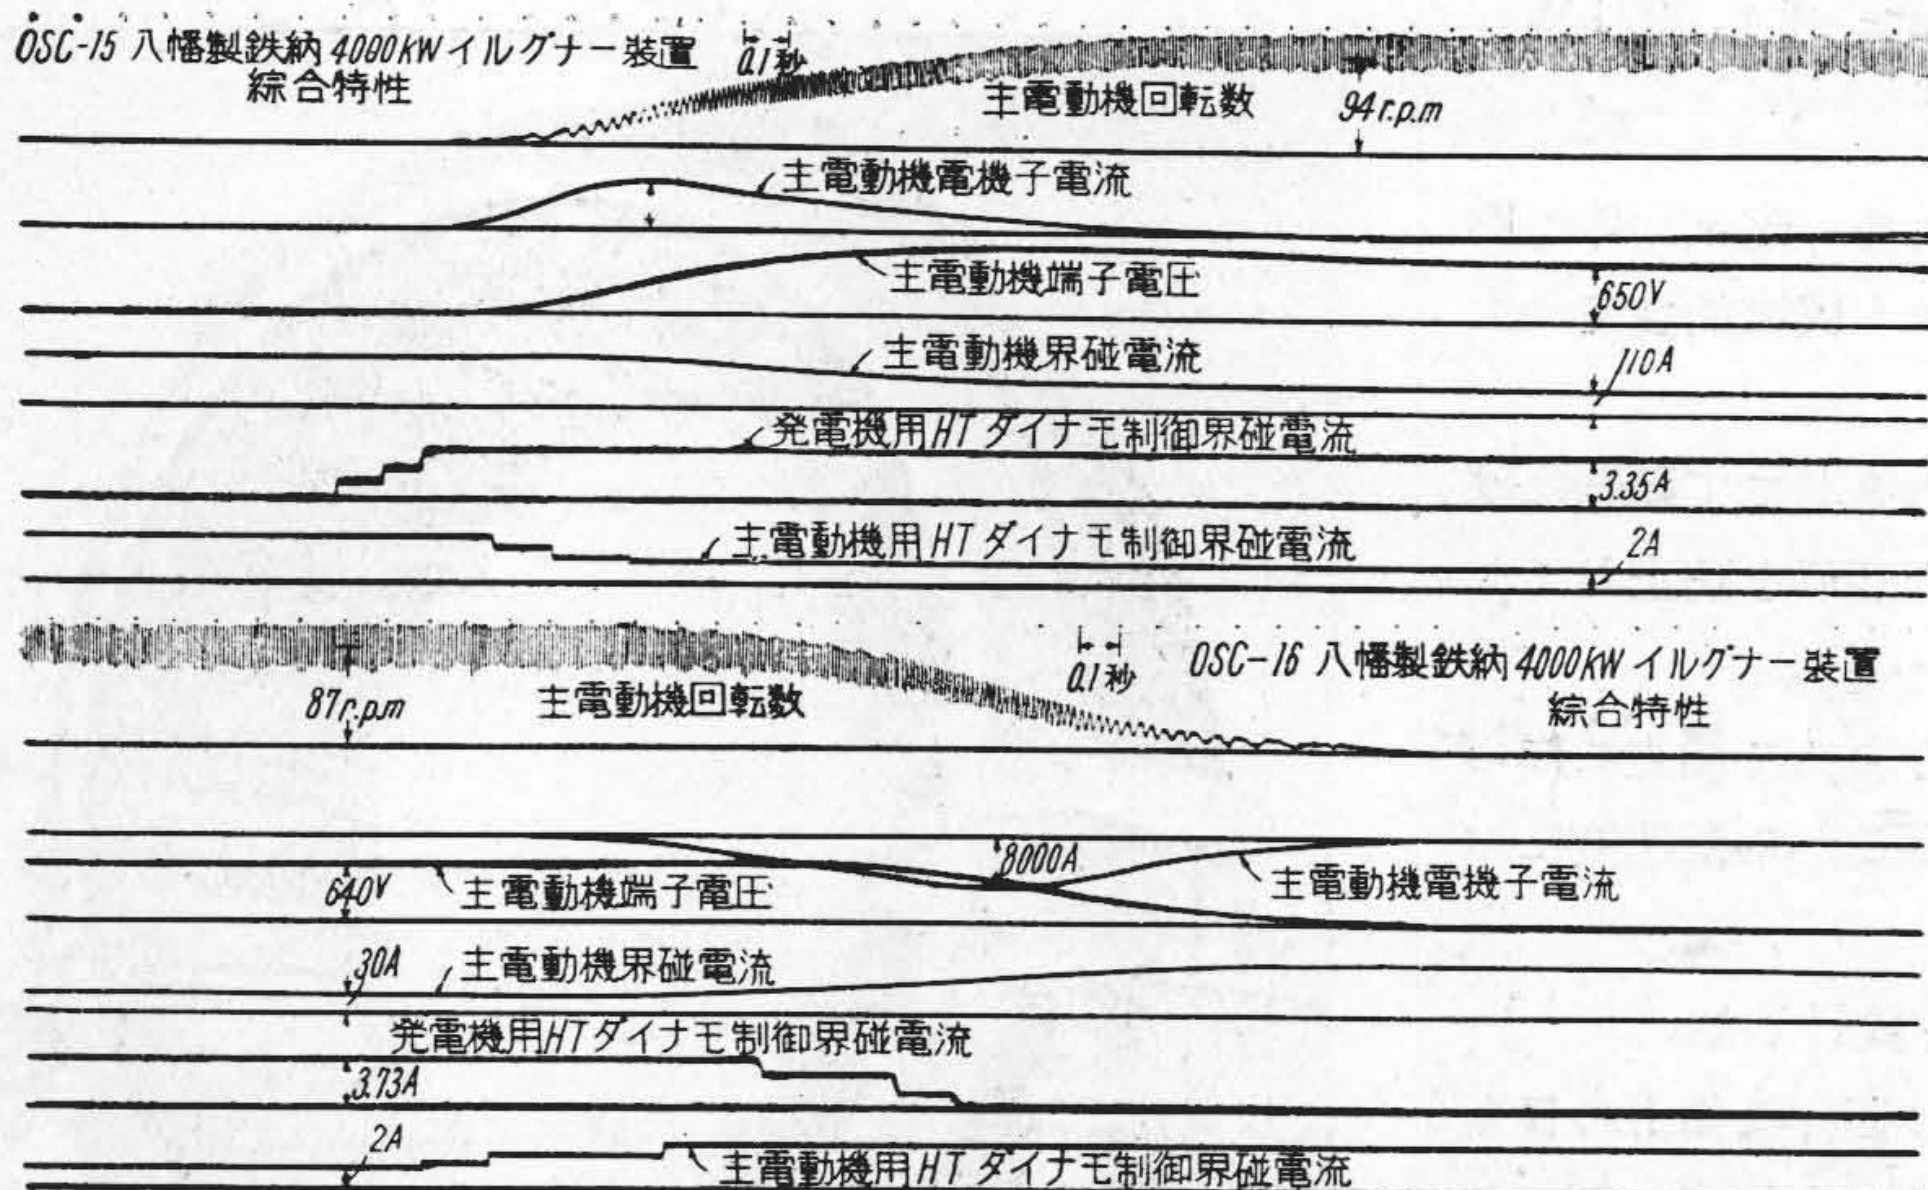 OSC-15 八幡製鉄納 4000KW イルグナー装置
綜合特性
0.1秒
主電動機回転数
94 r.p.m
主電動機電機子電流
主電動機端子電圧
650V
主電動機界磁電流
110A
発電機用HTダイナモ制御界磁電流
3.35A
主電動機用HTダイナモ制御界磁電流
2A
0.1秒
OSC-16 八幡製鉄納 4000KW イルグナー装置
綜合特性
87r.p.m
主電動機回転数
8000A
640V
主電動機端子電圧
主電動機電機子電流
30A
主電動機界磁電流
発電機用HTダイナモ制御界磁電流
3.73A
2A
主電動機用HTダイナモ制御界磁電流